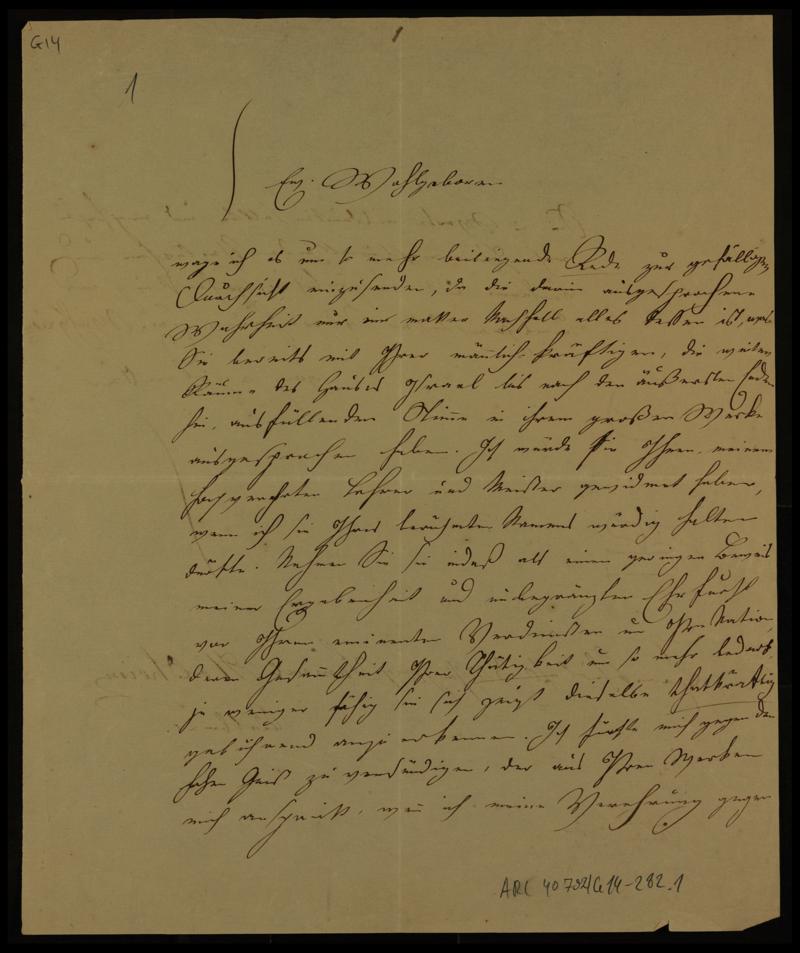 G14
1
1
Ew. Wohlgeboren
wage ich es um so mehr beiliegende Rede zur gefälligen
Durchsicht einzusenden, da die darin ausgesprochene
Wahrheit nur ein matter Nachhall alles dessen ist, was
Sie bereits mit Ihrer männlich kräftigen, die weiten
Räume des Hauses Israel bis nach den äußersten Enden
hin, ausfüllenden Stimme in ihrem großen Werke
ausgesprochen haben. Ich würde sie Ihnen, meinem
hochverehrten Lehrer und Meister gewidmet haben,
wenn ich sie Ihres berühmten Namens würdig halten
dürfte. Nehmen Sie sie indeß als einen geringen Beweis
meiner Ergebenheit und unbegränzten Ehrfurcht
vor Ihren eminenten Verdiensten um Ihre Nation,
deren Gesammtheit Ihrer Thätigkeit um so mehr bedarf
je weniger fähig sie sich zeigt dieselbe thatkräftig
gebührend anzuerkennen. Ich fürchte mich gegen den
hohen Geist zu versündigen, der aus Ihren Werken
mich anspricht, wenn ich meine Verehrung gegen
ARC 4o 792/G14-282.1